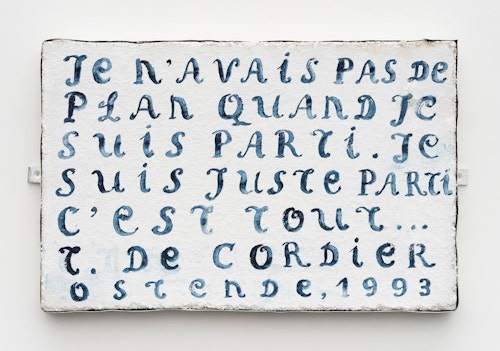 Je n'avais pas de
plan quand je
suis parti. Je
suis juste parti
c'est tout...
T. De Cordier
Ostende, 1993